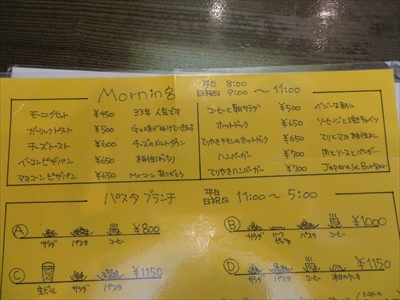 Morning 平日 8:00
日祝日 9:00 ～11:00
モーニングセット ¥450 33年人気です
ガーリックトースト ¥500
チーズトースト ¥600 チーズのメルトダウン
ベーコンピザパン ¥650 相性ばっちり
マヨコーンピザパン ¥650 Mr.コーン ありがとう
コーヒーと朝サラダ ¥500 ベジーな朝に
ホットドック ¥650 ソーセージと焼き
てりやきチキンのホットドック ¥650 てりとマヨ 相性よし
ハンバーガー ¥700 肉とソースとバンズ
てりやきハンバーガー ¥700 Japanese Burger
パスタブランチ 平日
日祝日 11:00～5:00
A ¥800
サラダ パスタ コーヒー
B ¥1000
サラダ ハーフピザ パスタ コーヒー
C ¥1150
生ビール サラダ パスタ
D ¥1150
サラダ パスタ コーヒー 本日のケーキ